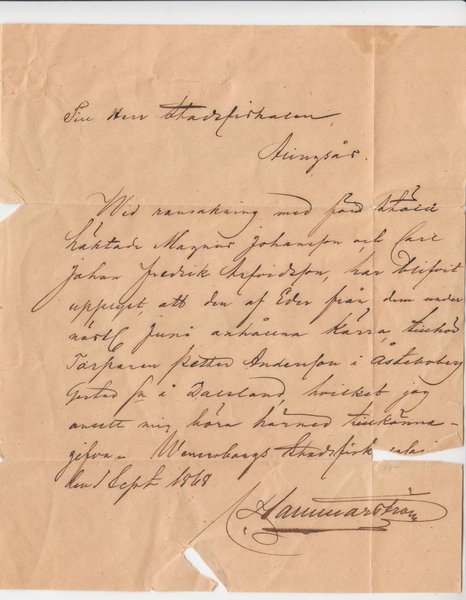 Till Herr Stadsfiskalen,
Alingsås.
Wid ransakning med för stöld
häktade Magnus Johansson och Carl
Johan Fredrik Arfvidsson, har blifvit
uppgifvet, att den af Eder från dem under
näst Juni anhållna Kärra, tillhör
Torparen Petter Andersson i
Gestad Sn i Dalsland, hvilket jag
ansett mig böra härmed tillkänna-
gifva. Wenersborgs Stadsfiskals
den 1 Sept 1868
Hammarström